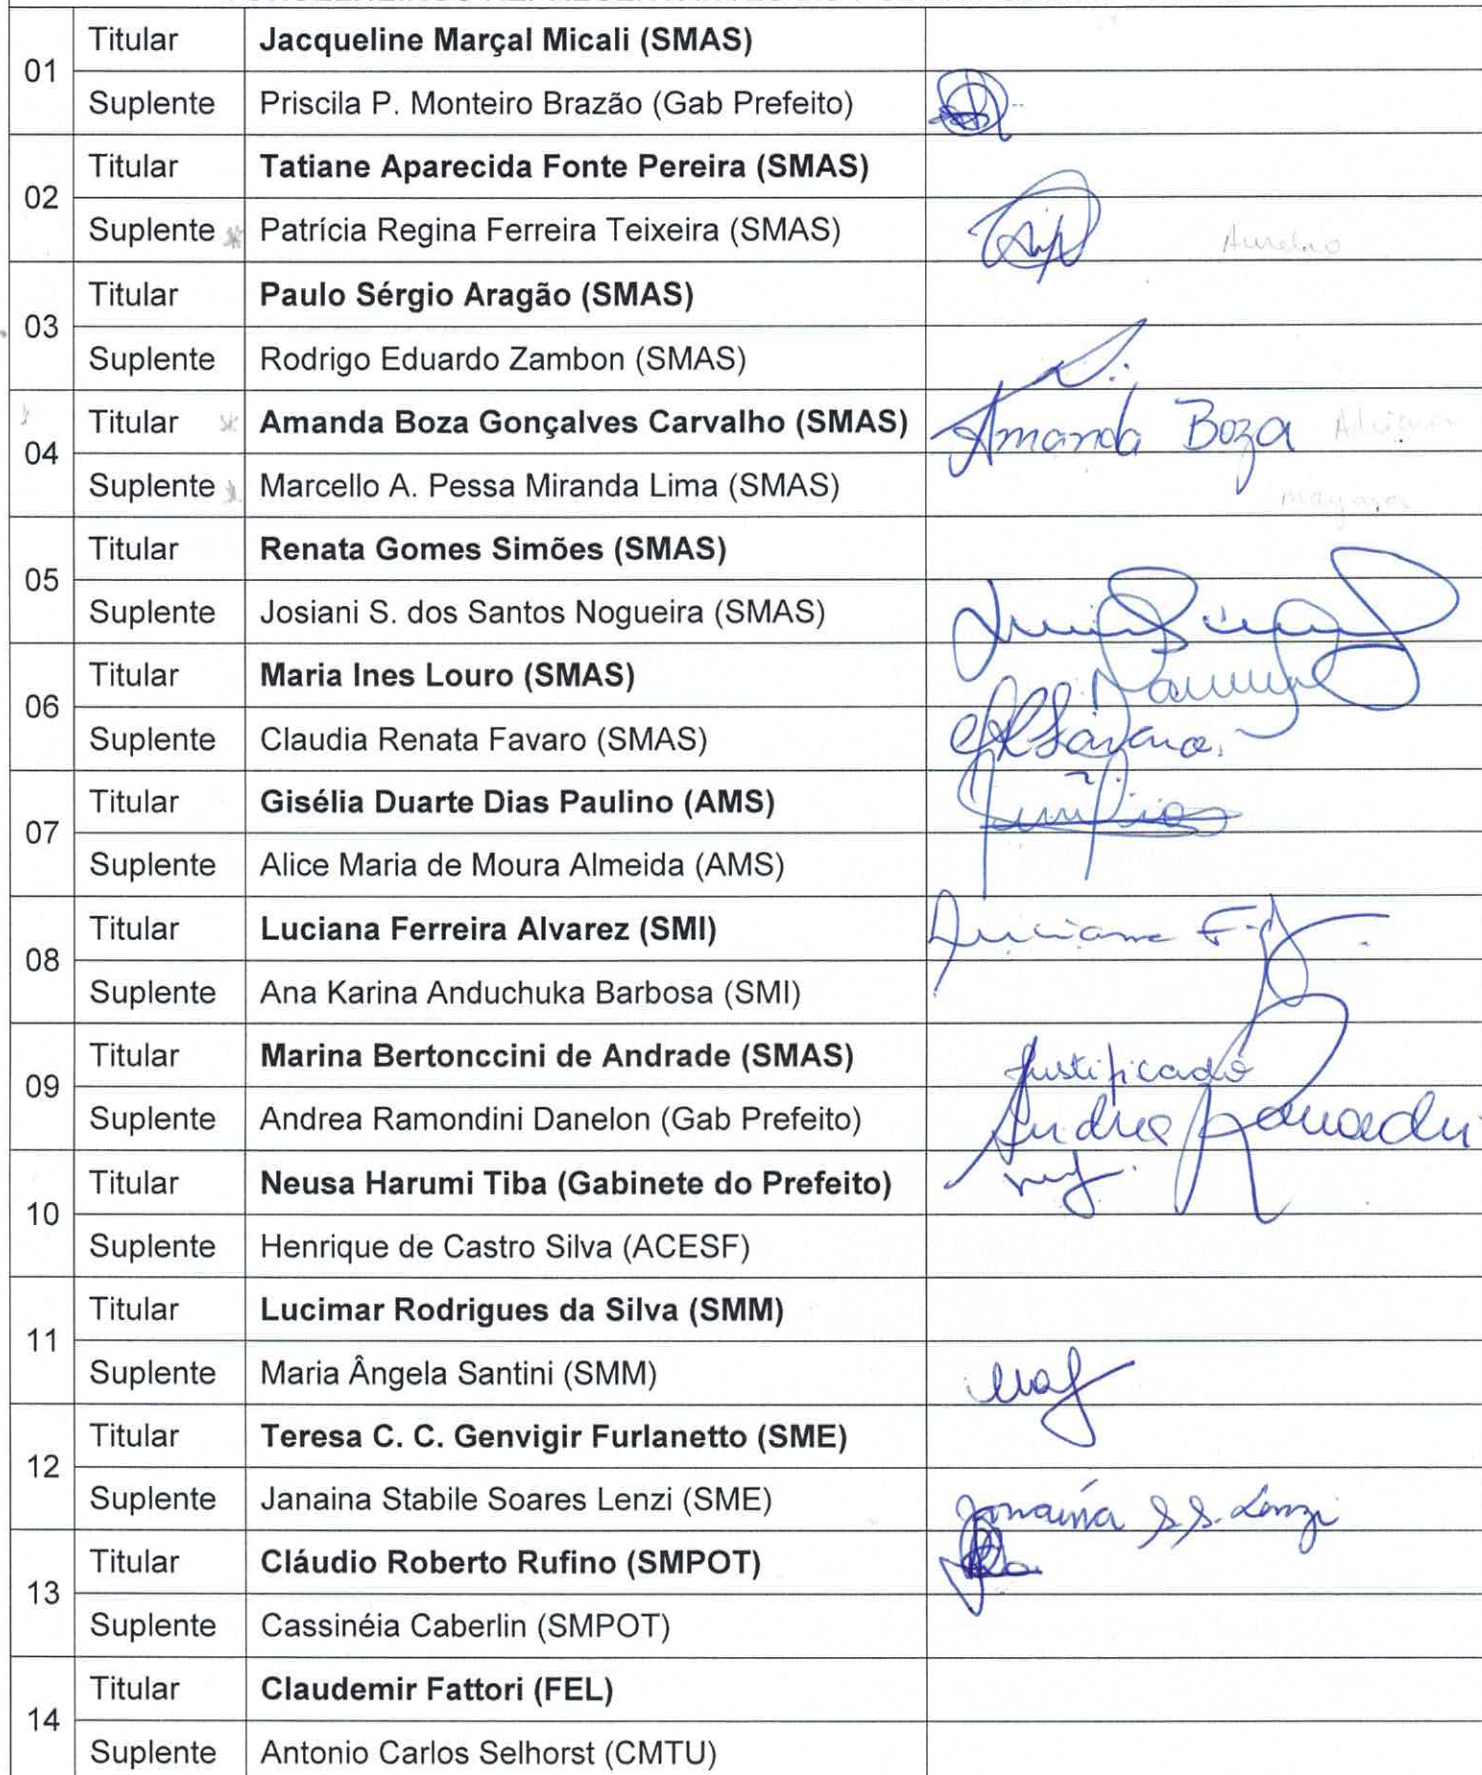 01
Titular Jacqueline Marçal Micali (SMAS)
Suplente Priscila P. Monteiro Brazão (Gab Prefeito)
02
Titular Tatiane Aparecida Fonte Pereira (SMAS)
Suplente * Patrícia Regina Ferreira Teixeira (SMAS)
03
Titular Paulo Sérgio Aragão (SMAS)
Suplente Rodrigo Eduardo Zambon (SMAS)
04
Titular * Amanda Boza Gonçalves Carvalho (SMAS) Amanda Boza
Suplente Marcello A. Pessa Miranda Lima (SMAS)
05
Titular Renata Gomes Simões (SMAS)
Suplente Josiani S. dos Santos Nogueira (SMAS)
06
Titular Maria Ines Louro (SMAS)
Suplente Claudia Renata Favaro (SMAS)
07
Titular Gisélia Duarte Dias Paulino (AMS)
Suplente Alice Maria de Moura Almeida (AMS)
08
Titular Luciana Ferreira Alvarez (SMI) Luciana F.
Suplente Ana Karina Anduchuka Barbosa (SMI)
09
Titular Marina Bertonccini de Andrade (SMAS) Justificado
Suplente Andrea Ramondini Danelon (Gab Prefeito) Andrea
10
Titular Neusa Harumi Tiba (Gabinete do Prefeito)
Suplente Henrique de Castro Silva (ACESF)
11
Titular Lucimar Rodrigues da Silva (SMM)
Suplente Maria Ângela Santini (SMM)
12
Titular Teresa C. C. Genvigir Furlanetto (SME)
Suplente Janaina Stabile Soares Lenzi (SME) Janaína S.S. Lenzi
13
Titular Cláudio Roberto Rufino (SMPOT)
Suplente Cassinéia Caberlin (SMPOT)
14
Titular Claudemir Fattori (FEL)
Suplente Antonio Carlos Selhorst (CMTU)